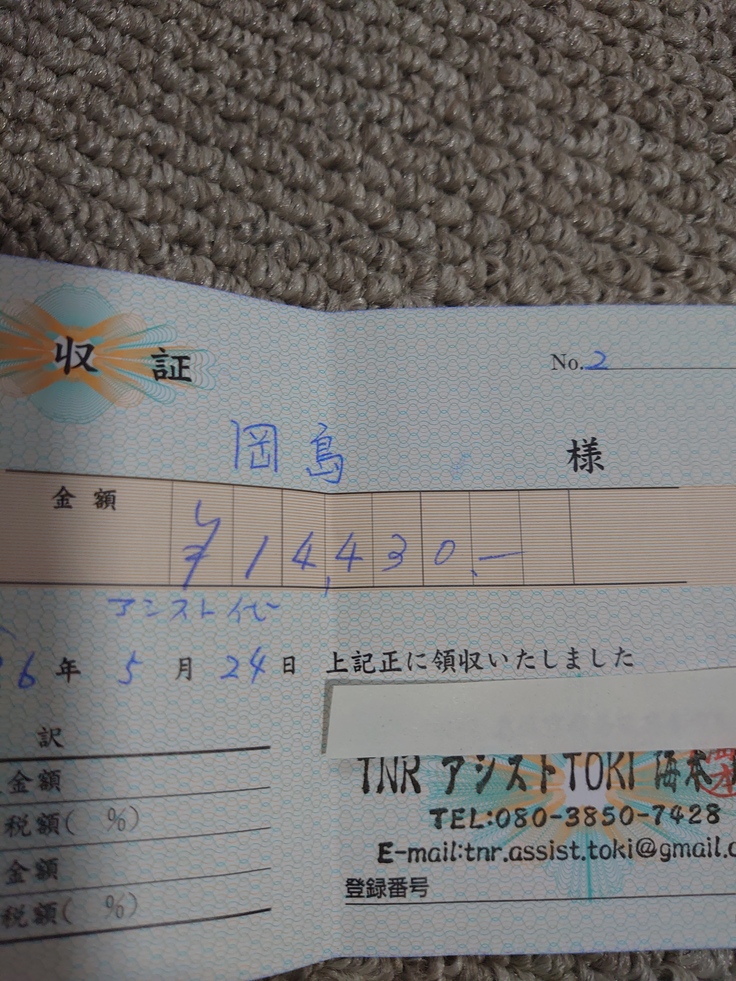 収 証
No. 2
岡島 様
金額 ¥14,430.—
アシスト代
6年 5月 24日 上記正に領収いたしました
訳
金額
税額( %)
金額
税額( %)
TNR アシストTOKI 海本
TEL:080-3850-7428
E-mail:tnr.assist.toki@gmail.c
登録番号